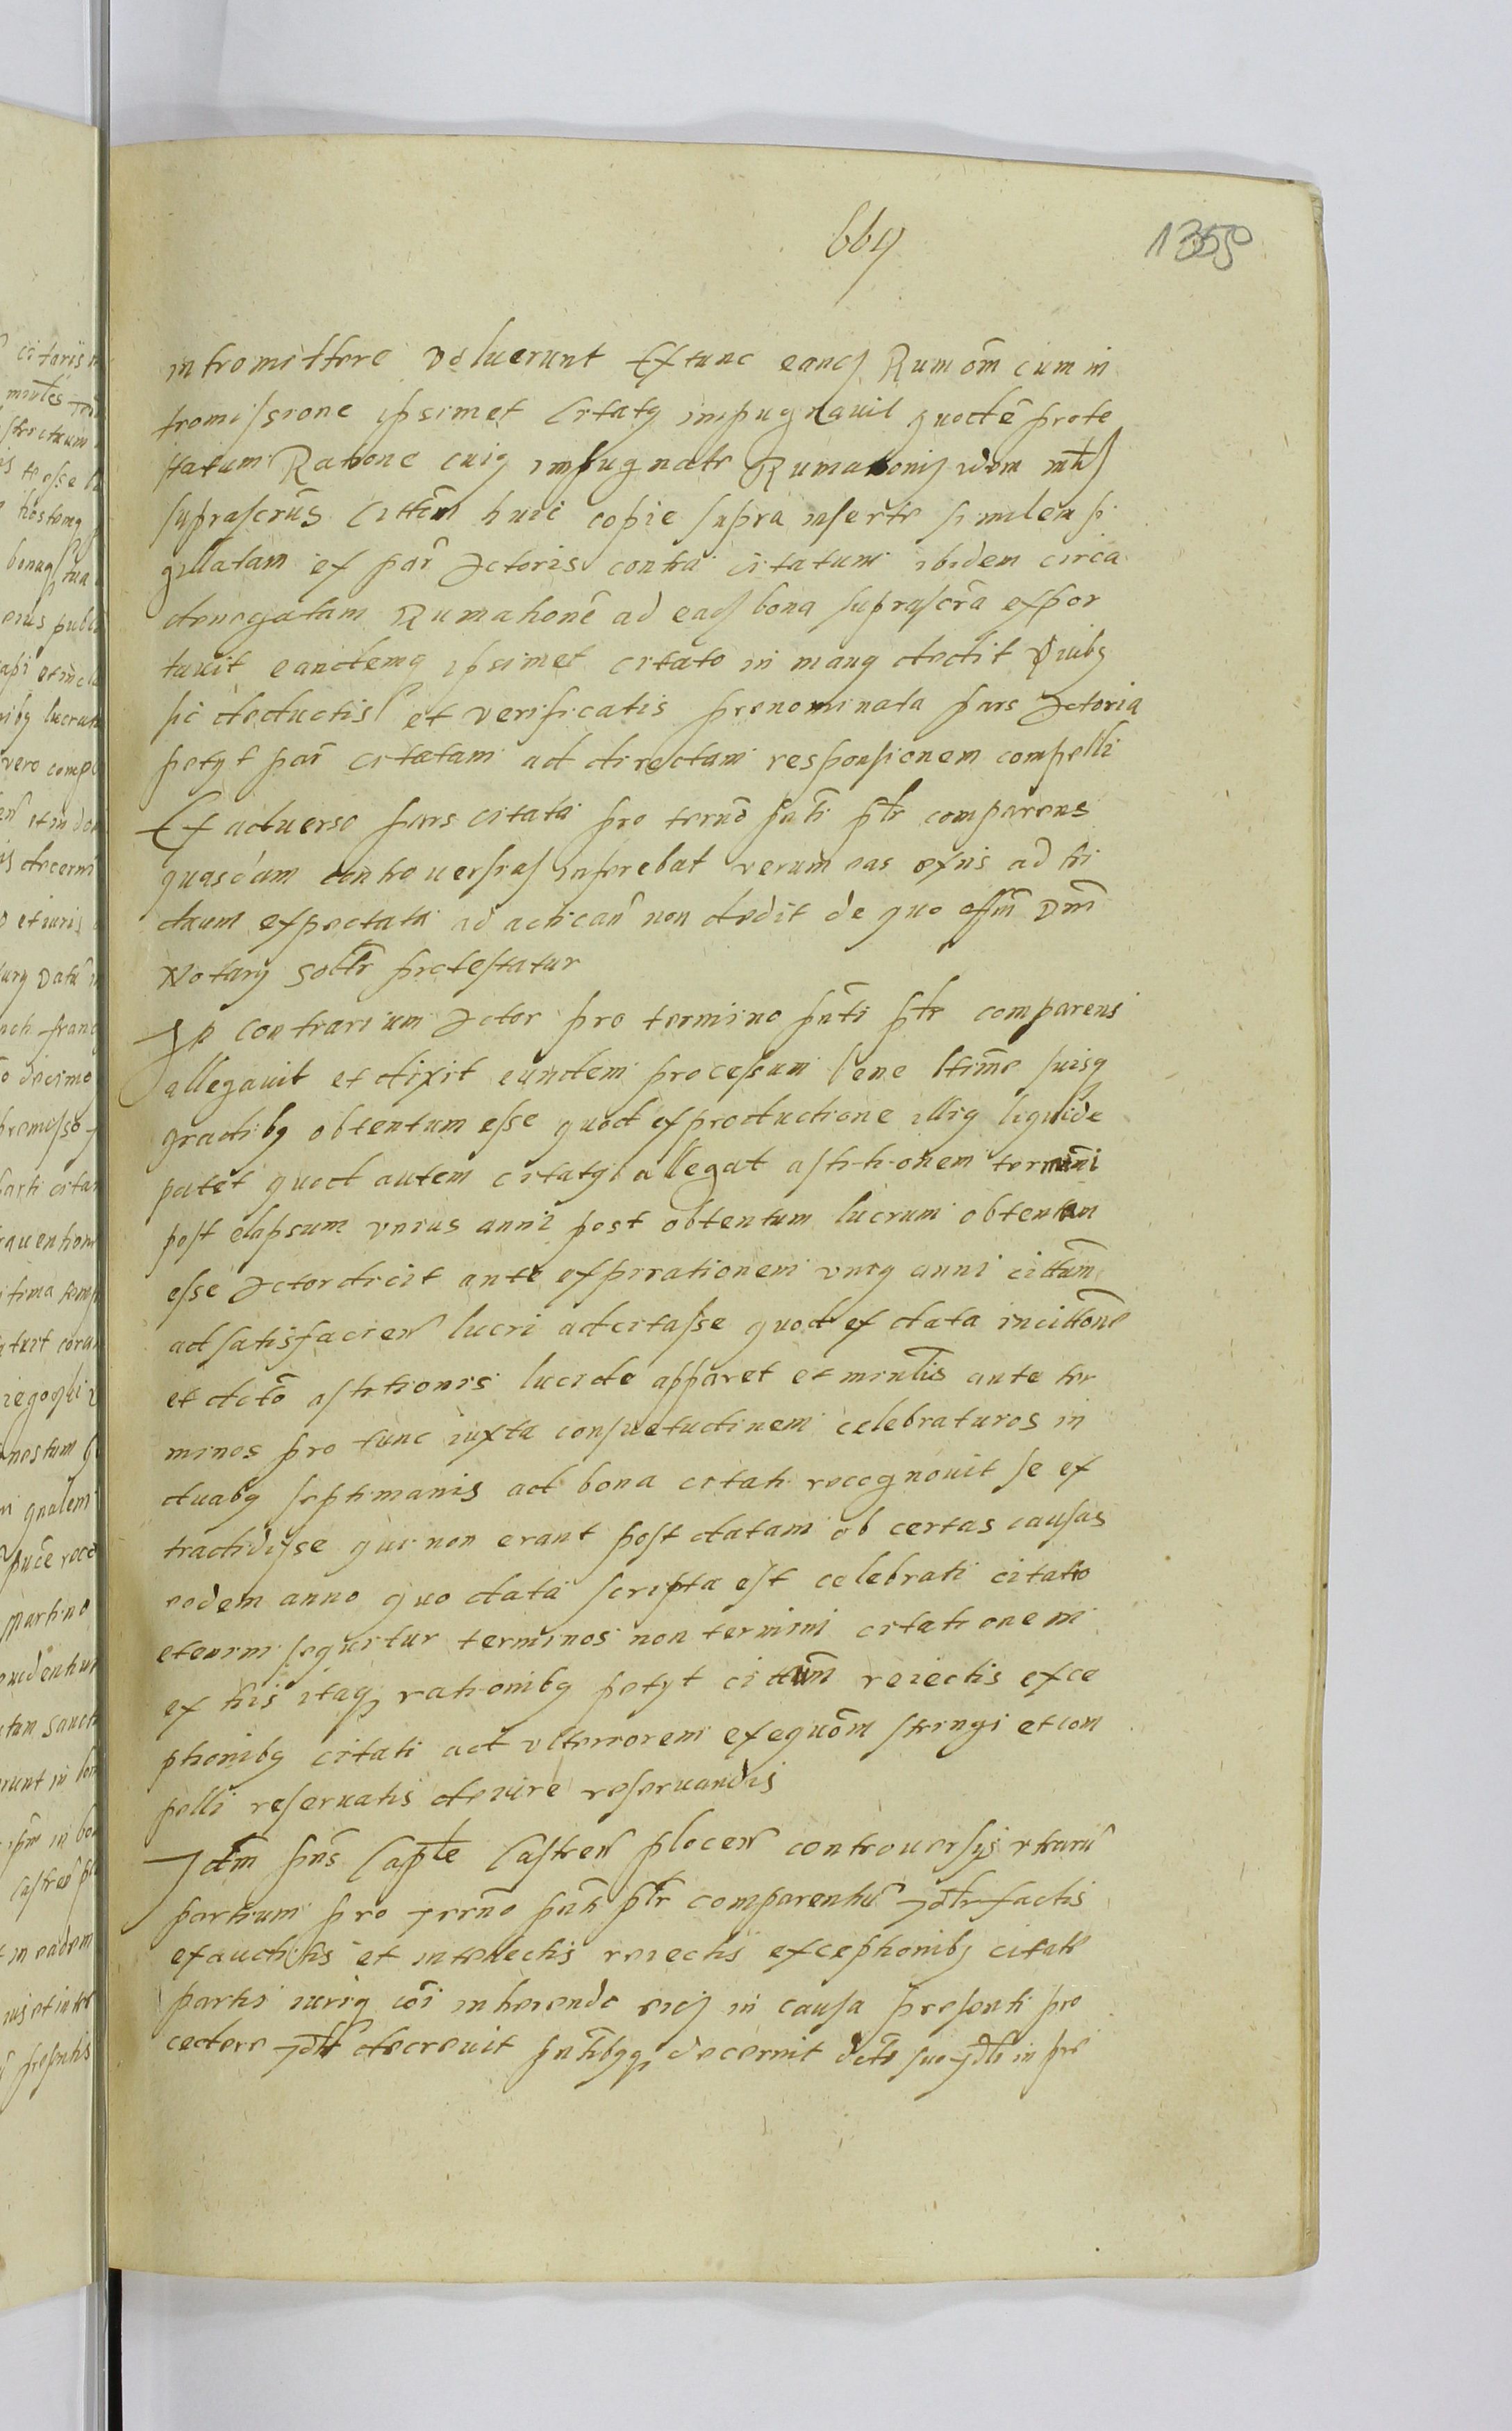 664
1350
intromittere voluerunt Extunc eandꝫ Rumōm cum in
tromissione ipsimet Citatꝰ impugnauit quodē prote
statum Ratione cuiꝰ impugnate Rumationis idem
suprascrūs Cittōm huic copie supra inserte similem si
gillatam ex par Actoris contra citatum ibidem circa
denegatam Rumationē ad eadꝫ bona suprascrā expor
tauit eandemqꝫ ipsimet citato in manꝰ dedit Quibꝫ
sic deductis et verificatis prenominata pars Actoria
petyt par citatam ad directam responsionem compelli
Ex aduerso pars citata pro termō pnti ptr comparens
quasdam controuersias inferebat verum eas
expectata ad acticañ non dedit de quo offm Dm̄
Notary protestatur
In contrarium Actor pro termino pnti ptr comparens
allegauit et dixit eundem processum bene ltime suisqꝫ
gradibꝫ obtentum esse quod ex productione illiꝰ liquide
patet quod autem citatꝰ allegat astitionem termini
post elapsum vnius anni post obtentum lucrum obtentam
esse Actor dicit ante expirationem vniꝰ anni cittum
ad satisfacieñ lucri adcitasse quod ex data in cittone
et dato astitionis lucide apparet et mintlis ante ter
minos pro tunc iuxta consuetudinem celebraturos in
duabꝰ septimanis ad bona citati recognouit se ex
tradidisse qui non erant post datam ob certas causas
eodem anno quo data scripta est celebrati citatio
etenim sequitur terminos non termini citationem
ex his itaqꝫ rationibꝰ petyt cittum reiectis exce
ptionibꝰ citati ad vlteriorem exequōm stringi et com
pelli reseruatis de iure reseruandis
Idm pns Capte Castreñ ploceñ controuersys vtrarū
partium pro termō pnti ptr comparentiū Idlr factis
exauditis et intellectis reiectis exceptionibꝫ citate
partis iuriqꝫ coi inherendo eidꝫ in causa presenti pro
cedere Idlr decreuit pntibꝰqꝫ decernit suo in pre